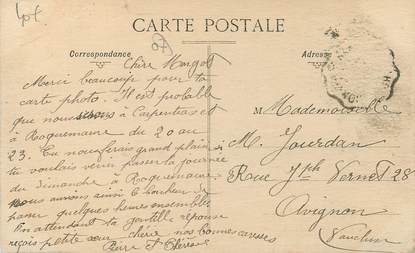 4pf
CARTE POSTALE
Correspondance
Adresse
Chère Margot
Merci beaucoup pour ta
carte photo. Il est probable
que nous serons à Carpentras et
à Roquemaure du 20 au
23. Tu nous ferais grand plaisir si
tu voulais venir passer la journée
du dimanche à Roquemaure
Nous aurions ainsi le bonheur de
passer quelques heures ensemble
En attendant ta gentille réponse
reçois petite sœur chérie nos bonnes caresses
M Mademoiselle
M. Jourdan
Rue Jph Vernet 28
Avignon
Vaucluse